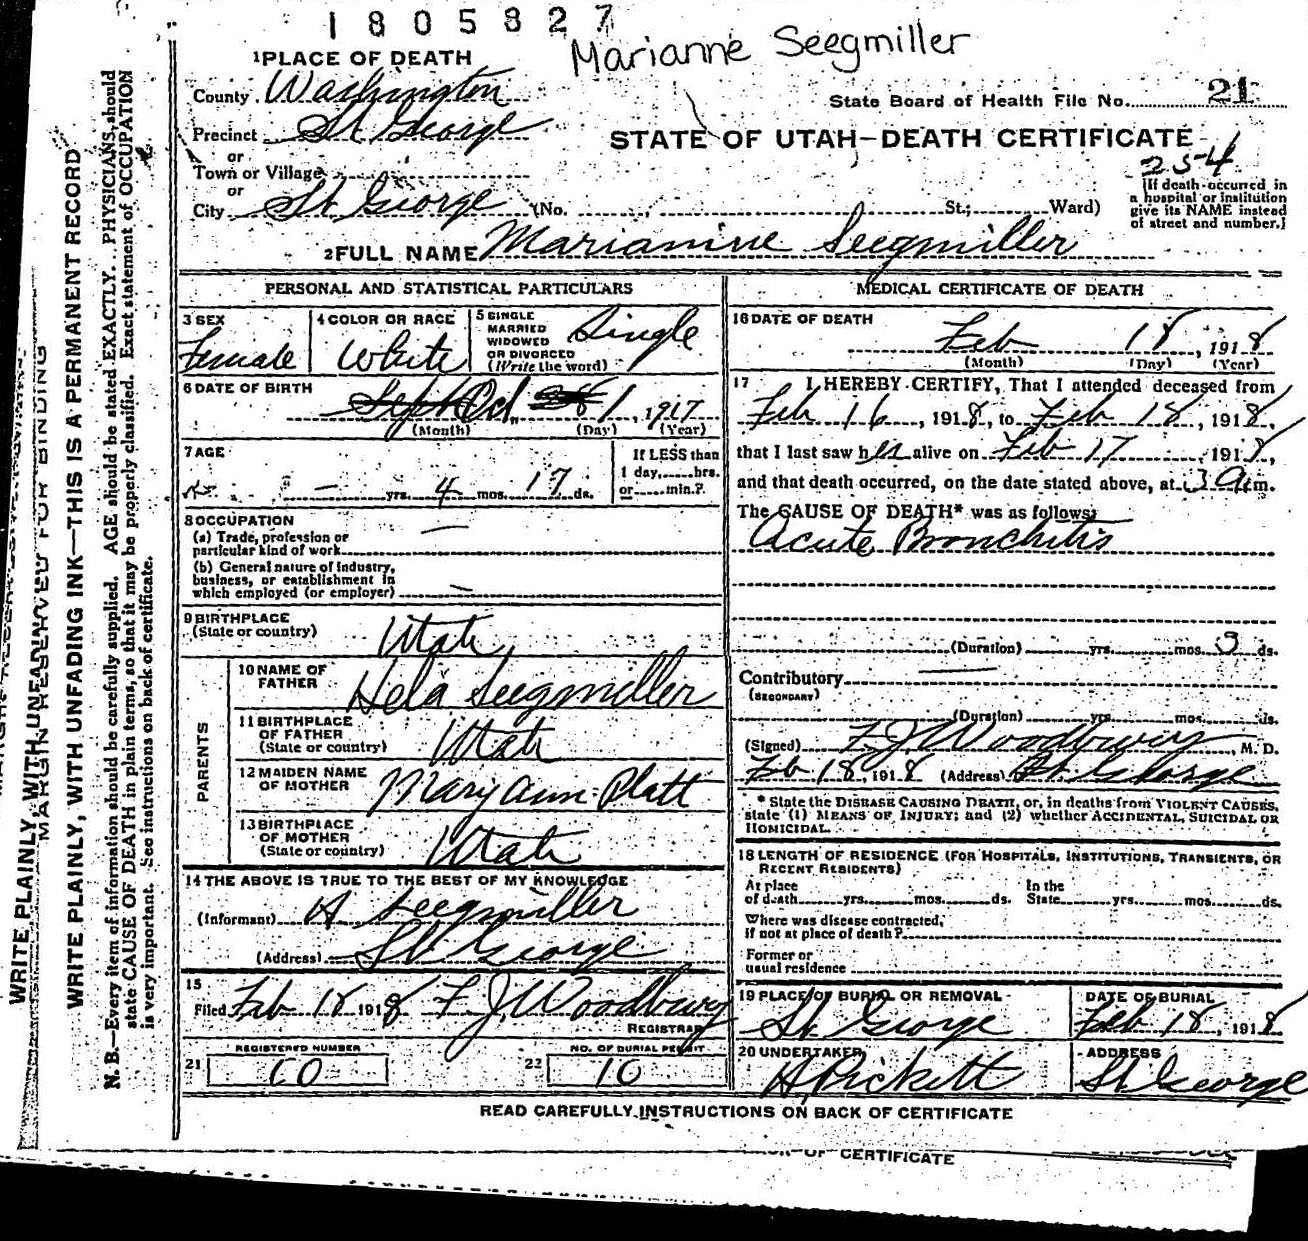 1805827
Marianne Seegmiller
1 PLACE OF DEATH
County Washington
State Board of Health File No. 21
Precinct St George
STATE OF UTAH—DEATH CERTIFICATE
or
Town or Village
254
or
City St George (No. St.; Ward)
[If death occurred in
a hospital or institution
give its NAME instead
of street and number.]
2 FULL NAME Marianine Seegmiller
PERSONAL AND STATISTICAL PARTICULARS
3 SEX
Female
4 COLOR OR RACE
White
5 SINGLE
MARRIED
WIDOWED
OR DIVORCED
(Write the word)
Single
6 DATE OF BIRTH
Oct 1, 1917
(Month) (Day) (Year)
7 AGE
– yrs. 4 mos. 17 ds.
If LESS than
1 day, hrs.
or min.?
8 OCCUPATION
(a) Trade, profession or
particular kind of work —
(b) General nature of industry,
business, or establishment in
which employed (or employer) —
9 BIRTHPLACE
(State or country) Utah
PARENTS
10 NAME OF
FATHER Hela Seegmiller
11 BIRTHPLACE
OF FATHER
(State or country) Utah
12 MAIDEN NAME
OF MOTHER Mary Ann Platt
13 BIRTHPLACE
OF MOTHER
(State or country) Utah
14 THE ABOVE IS TRUE TO THE BEST OF MY KNOWLEDGE
(Informant) H Seegmiller
(Address) St George
15
Filed Feb 18 1918 F. J. Woodbury
REGISTRAR
REGISTERED NUMBER
21 10
NO. OF BURIAL PERMIT
22 10
MEDICAL CERTIFICATE OF DEATH
16 DATE OF DEATH
Feb 18, 1918
(Month) (Day) (Year)
17 I HEREBY CERTIFY, That I attended deceased from
Feb 16, 1918, to Feb 18, 1918,
that I last saw her alive on Feb 17 1918,
and that death occurred, on the date stated above, at 3 A m.
The CAUSE OF DEATH* was as follows:
Acute Bronchitis
(Duration) yrs. mos. 3 ds.
Contributory —
(SECONDARY)
(Duration) yrs. mos. ds.
(Signed) F. J. Woodbury, M. D.
Feb 18, 1918 (Address) St. George
* State the DISEASE CAUSING DEATH, or, in deaths from VIOLENT CAUSES,
state (1) MEANS OF INJURY; and (2) whether ACCIDENTAL, SUICIDAL OR
HOMICIDAL.
18 LENGTH OF RESIDENCE (FOR HOSPITALS, INSTITUTIONS, TRANSIENTS, OR
RECENT RESIDENTS)
At place
of death yrs. mos. ds.
In the
State yrs. mos. ds.
Where was disease contracted,
if not at place of death?
Former or
usual residence
19 PLACE OF BURIAL OR REMOVAL
St George
DATE OF BURIAL
Feb 18, 1918
20 UNDERTAKER
H Pickett
ADDRESS
St. George
READ CAREFULLY INSTRUCTIONS ON BACK OF CERTIFICATE
OF CERTIFICATE
WRITE PLAINLY, WITH UNFADING
MARGIN RESERVED FOR BINDING
WRITE PLAINLY, WITH UNFADING INK—THIS IS A PERMANENT RECORD
N. B.—Every item of information should be carefully supplied. AGE should be stated EXACTLY. PHYSICIANS should
state CAUSE OF DEATH in plain terms, so that it may be properly classified. Exact statement of OCCUPATION
is very important. See instructions on back of certificate.